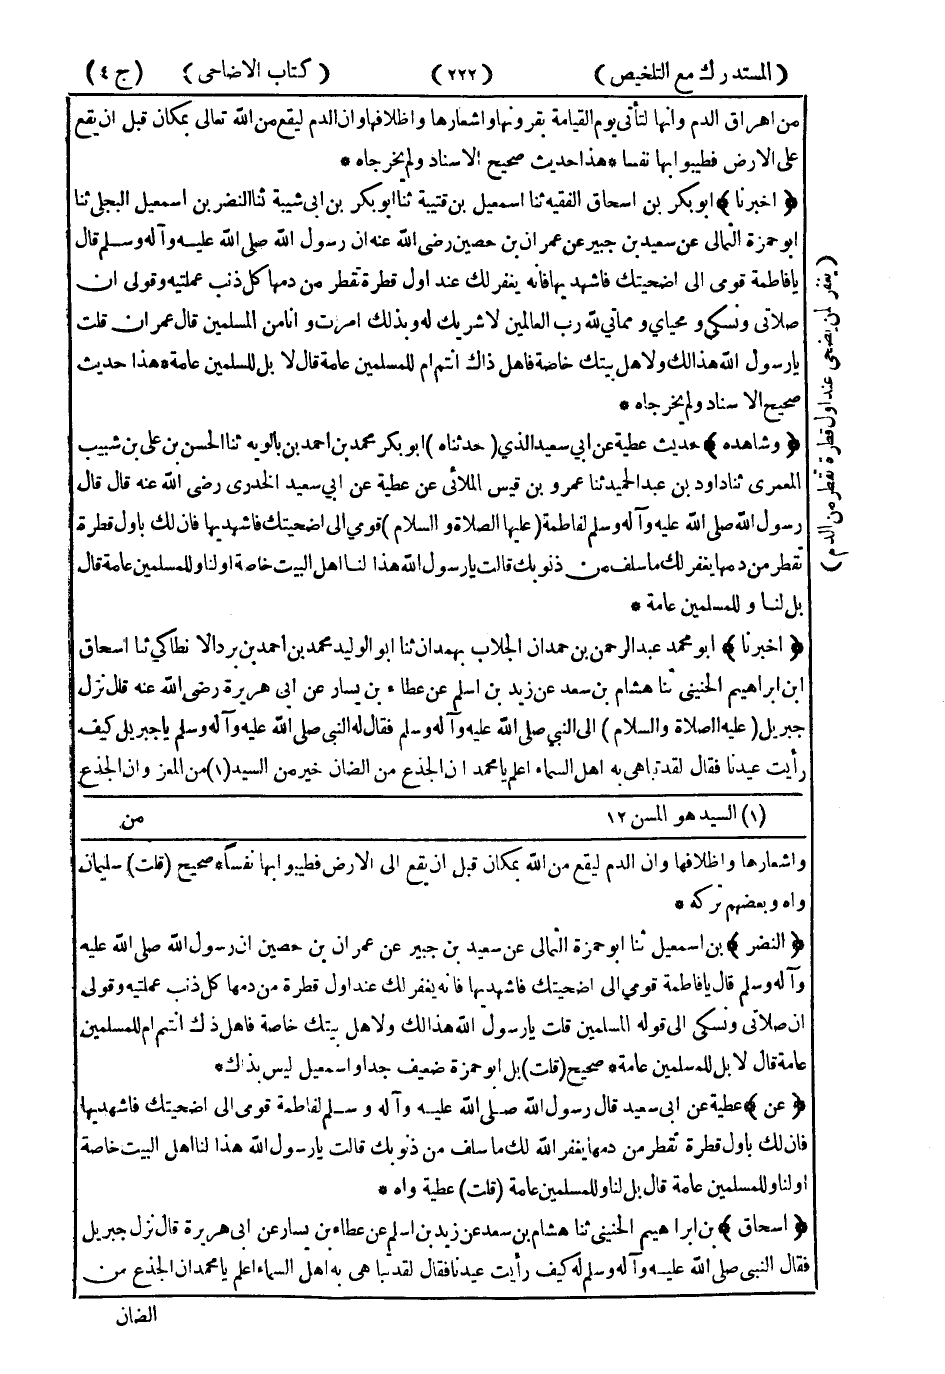 ( المستدرك مع التلخيص ) ( ٢٢٢ ) ( كتاب الاضاحى ) ( ج ٤ )
من اهراق الدم وانها لتأتى يوم القيامة بقرونها واشعارها واظلافها وان الدم ليقع من الله تعالى بمكان قبل ان يقع
على الارض فطيبوا بها نفسا * هذا حديث صحيح الاسناد ولم يخرجاه *
﴿ اخبرنا ﴾ ابوبكر بن اسحاق الفقيه ثنا اسمعيل بن قتيبة ثنا ابوبكر بن ابى شيبة ثنا النضر بن اسمعيل البجلى ثنا
ابو حمزة الثمالى عن سعيد بن جبير عن عمران بن حصين رضى الله عنه ان رسول الله صلى الله عليه وآله وسلم قال
يا فاطمة قومى الى اضحيتك فاشهديها فانه يغفر لك عند اول قطرة تقطر من دمها كل ذنب عملتيه وقولى ان
صلاتى ونسكى و محياي و مماتي لله رب العالمين لا شريك له وبذلك امرت و انا من المسلمين قال عمران قلت
يا رسول الله هذا لك ولاهل بيتك خاصة فاهل ذاك انتم ام للمسلمين عامة قال لا بل للمسلمين عامة * هذا حديث
صحيح الاسناد ولم يخرجاه *
﴿ وشاهده ﴾ حديث عطية عن ابي سعيد الذي ( حدثناه ) ابو بكر محمد بن احمد بن بالويه ثنا الحسن بن على بن شبيب
المعمرى ثنا داود بن عبد الحميد ثنا عمرو بن قيس الملائى عن عطية عن ابي سعيد الخدرى رضى الله عنه قال قال
رسول الله صلى الله عليه وآله وسلم لفاطمة ( عليها الصلاة و السلام ) قومي الى اضحيتك فاشهديها فان لك باول قطرة
تقطر من دمها يغفر لك ما سلف من ذنوبك قالت يا رسول الله هذا لنا اهل البيت خاصة او لنا وللمسلمين عامة قال
بل لنا و للمسلمين عامة *
﴿ اخبرنا ﴾ ابو محمد عبد الرحمن بن حمدان الجلاب بهمدان ثنا ابو الوليد محمد بن احمد بن برد الانطاكي ثنا اسحاق
ابن ابراهيم الحنينى ثنا هشام بن سعد عن زيد بن اسلم عن عطاء بن يسار عن ابى هريرة رضى الله عنه قال نزل
جبريل ( عليه الصلاة والسلام ) الى النبي صلى الله عليه وآله وسلم فقال له النبي صلى الله عليه وآله وسلم يا جبريل كيف
رأيت عيدنا فقال لقد تباهى به اهل السماء اعلم يا محمد ان الجذع من الضان خير من السيد (١) من المعز وان الجذع
(١) السيد هو المسن ١٢ من
واشعارها واظلافها وان الدم ليقع من الله بمكان قبل ان يقع الى الارض فطيبوا بها نفسا * صحيح ( قلت ) سليمان
واه وبعضهم تركه *
﴿ النضر ﴾ بن اسمعيل ثنا ابو حمزة الثمالى عن سعيد بن جبير عن عمران بن حصين ان رسول الله صلى الله عليه
وآله وسلم قال يا فاطمة قومي الى اضحيتك فاشهديها فانه يغفر لك عند اول قطرة من دمها كل ذنب عملتيه وقولى
ان صلاتى ونسكى الى قوله المسلمين قلت يا رسول الله هذا لك ولاهل بيتك خاصة فاهل ذلك انتم ام للمسلمين
عامة قال لا بل للمسلمين عامة * صحيح ( قلت ) بل ابو حمزة ضعيف جدا و اسمعيل ليس بذاك *
﴿ عن ﴾ عطية عن ابى سعيد قال رسول الله صلى الله عليه وآله وسلم لفاطمة قومى الى اضحيتك فاشهديها
فان لك باول قطرة تقطر من دمها يغفر الله لك ما سلف من ذنوبك قالت يا رسول الله هذا لنا اهل البيت خاصة
او لنا وللمسلمين عامة قال بل لنا وللمسلمين عامة ( قلت ) عطية واه *
﴿ اسحاق ﴾ بن ابراهيم الحنينى ثنا هشام بن سعد عن زيد بن اسلم عن عطاء بن يسار عن ابى هريرة قال نزل جبريل
فقال النبى صلى الله عليه وآله وسلم له كيف رأيت عيدنا فقال لقد تباهى به اهل السماء اعلم يا محمد ان الجذع من
الضان
( يغفر لمن يضحى عند اول قطرة تقطر من الدم )